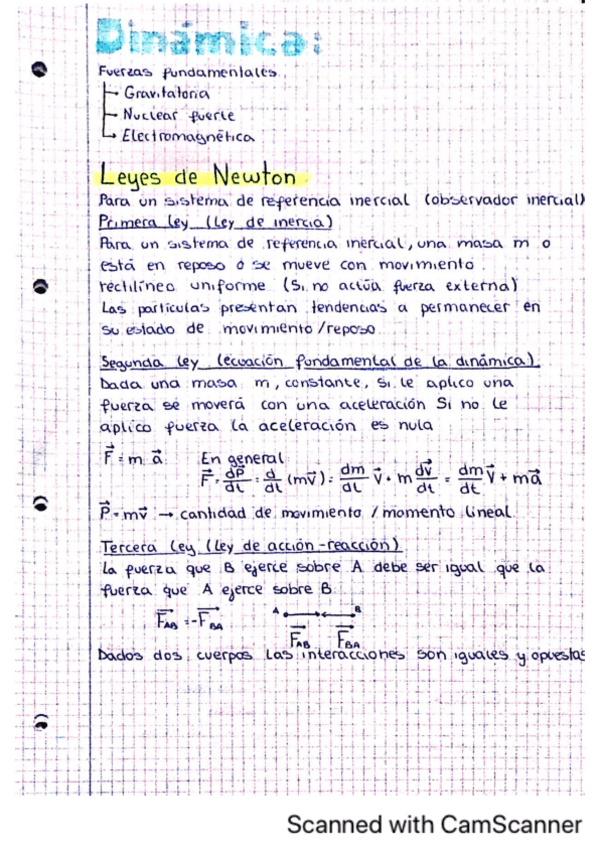 Dinámica:
Fuerzas fundamentales
Gravitatoria
Nuclear fuerte
Electromagnética
Leyes de Newton
Para un sistema de referencia inercial (observador inercial)
Primera ley (Ley de inercia)
Para un sistema de referencia inercial, una masa m o
está en reposo o se mueve con movimiento
rectilíneo uniforme (Si no actúa fuerza externa)
Las partículas presentan tendencias a permanecer en
su estado de movimiento/reposo
Segunda ley (ecuación fundamental de la dinámica)
Dada una masa m, constante, si le aplico una
fuerza se moverá con una aceleración Si no le
aplico fuerza la aceleración es nula
F⃗ = m a⃗ En general
F⃗ = dP⃗/dt = d/dt (mv⃗) = dm/dt v⃗ + m dv⃗/dt = dm/dt v⃗ + ma⃗
P⃗ = mv⃗ → cantidad de movimiento / momento lineal
Tercera ley (Ley de acción-reacción)
La fuerza que B ejerce sobre A debe ser igual que la
fuerza que A ejerce sobre B
F⃗AB = -F⃗BA A B
F⃗AB F⃗BA
Dados dos cuerpos las interacciones son iguales y opuestas
Scanned with CamScanner